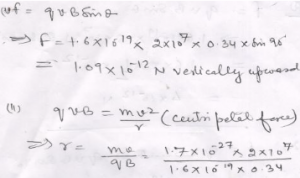 (i) f = q v B Sin θ
⇒ f = 1.6 × 10¹⁹ × 2×10⁷ × 0.34 × Sin 90°
= 1.09 × 10⁻¹² N vertically upward
(ii) q v B = mv²/r (centripetal force)
⇒ r = mv/qB = 1.7 × 10⁻²⁷ × 2×10⁷ / 1.6 × 10⁻¹⁹ × 0.34